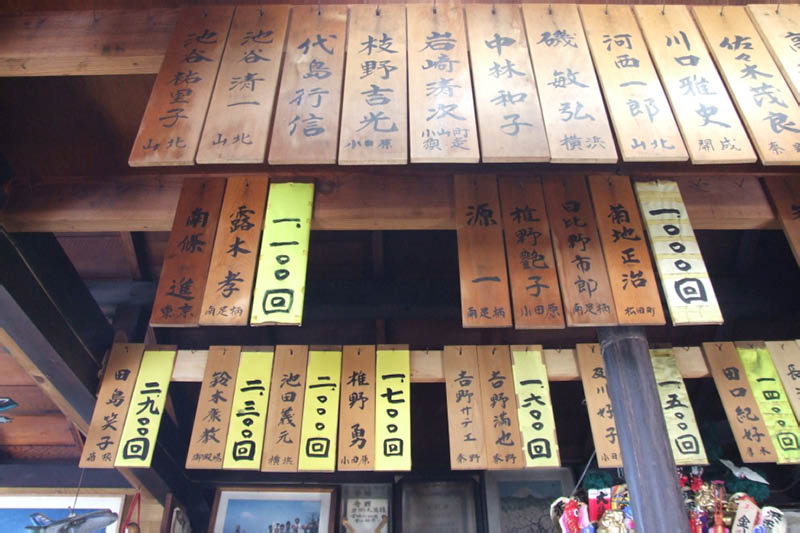 池谷祐里子
山北
池谷清一
山北
代島行信
枝野吉光
小田原
岩崎清次
小山町
須走
中林和子
磯敏弘
横浜
河西一郎
山北
川口雅史
開成
佐々木茂良
秦野
南條進
東京
露木孝
南足柄
一、一〇〇回
源一
南足柄
椎野艶子
小田原
日比野市郎
南足柄
菊地正治
松田町
一、〇〇〇回
田島笑子
箱根
二、九〇〇回
鈴木康教
御殿場
二、三〇〇回
池田義元
横浜
二、〇〇〇回
椎野勇
小田原
一、七〇〇回
吉野サテエ
秦野
吉野満也
秦野
一、六〇〇回
及川好子
一、五〇〇回
田口紀好
小田原
一、四〇〇回
長